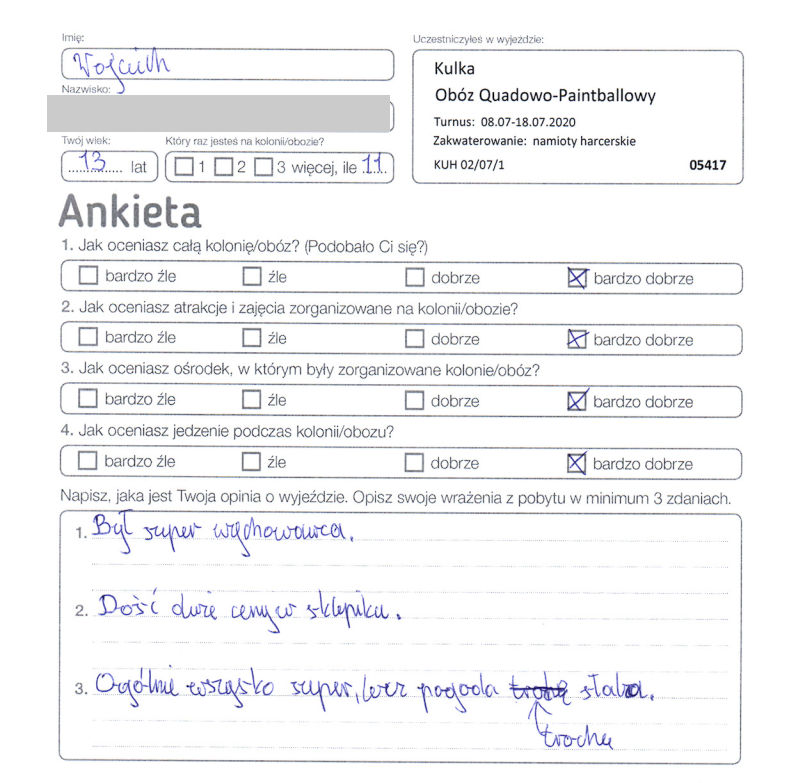 Imię:
Wojciech
Uczestniczyłeś w wyjeździe:
Kulka
Obóz Quadowo-Paintballowy
Turnus: 08.07-18.07.2020
Zakwaterowanie: namioty harcerskie
KUH 02/07/1 05417
Nazwisko:
Twój wiek: Który raz jesteś na kolonii/obozie?
13 lat 1 2 3 więcej, ile 11
Ankieta
1. Jak oceniasz całą kolonię/obóz? (Podobało Ci się?)
bardzo źle źle dobrze bardzo dobrze
2. Jak oceniasz atrakcje i zajęcia zorganizowane na kolonii/obozie?
bardzo źle źle dobrze bardzo dobrze
3. Jak oceniasz ośrodek, w którym były zorganizowane kolonie/obóz?
bardzo źle źle dobrze bardzo dobrze
4. Jak oceniasz jedzenie podczas kolonii/obozu?
bardzo źle źle dobrze bardzo dobrze
Napisz, jaka jest Twoja opinia o wyjeździe. Opisz swoje wrażenia z pobytu w minimum 3 zdaniach.
1. Był super wychowawca.
2. Dość duże ceny w sklepiku.
3. Ogólnie wszysko super, lecz pogoda słaba.
trochę